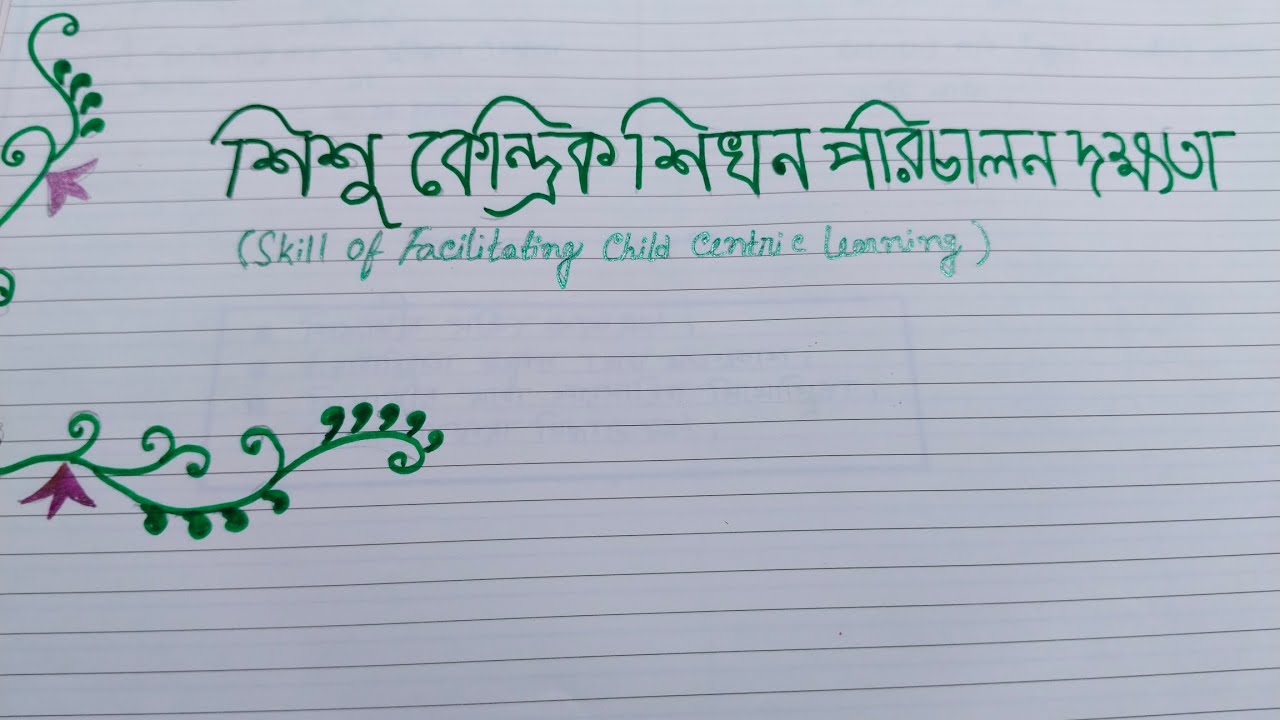 শিশু কেন্দ্রিক শিখন পরিচালন দক্ষতা
(Skill of Facilitating Child Centric Learning)